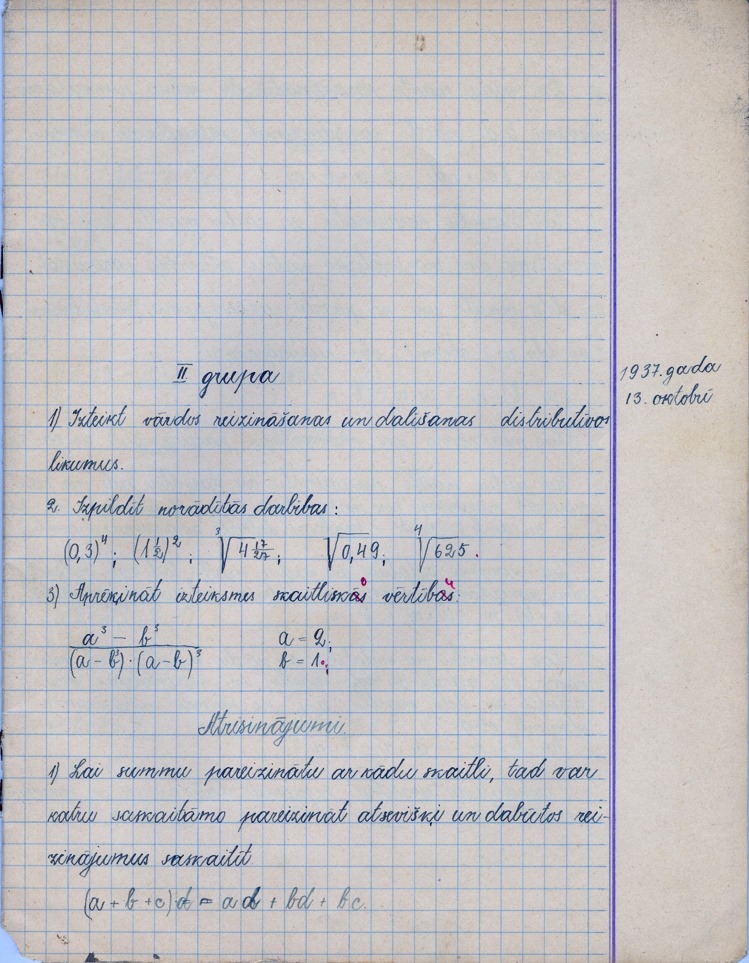 II grupa
1937. gada
13. oktobrī
1) Izteikt vārdos reizināšanas un dalīšanas distributīvos
likumus.
2. Izpildīt norādītās darbības:
(0,3)⁴; (1 1/2)²; ³√4 17/27; √0,49; ⁴√625.
3) Aprēķināt izteiksmes skaitlisko vērtību:
a³ − b³ a = 2;
(a − b³)·(a − b)³ b = 1.;
Atrisinājumi
1) Lai summu pareizinātu ar kādu skaitli, tad var
katru saskaitāmo pareizināt atsevišķi un dabūtos rei-
zinājumus saskaitīt.
(a + b + c)d = ad + bd + bc.